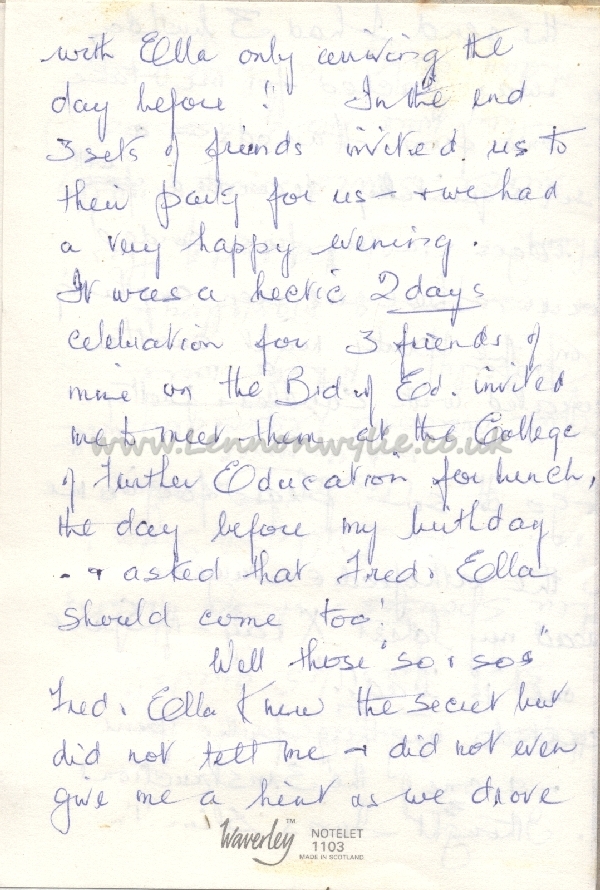 with Ella only arriving the
day before!! In the end
3 sets of friends invited us to
their party for us - + we had
a very happy evening.
It was a hectic 2 days
celebration for 3 friends of
mine on the Bd of Ed. invited
me to meet them at the College
www.Lennonwylie.co.uk
of Further Education for lunch,
the day before my birthday
.. + asked that Fred + Ella
should come too!
Well those "so + sos"
Fred + Ella knew the secret but
did not tell me + did not even
give me a hint as we drove
Waverley™ NOTELET
1103
MADE IN SCOTLAND